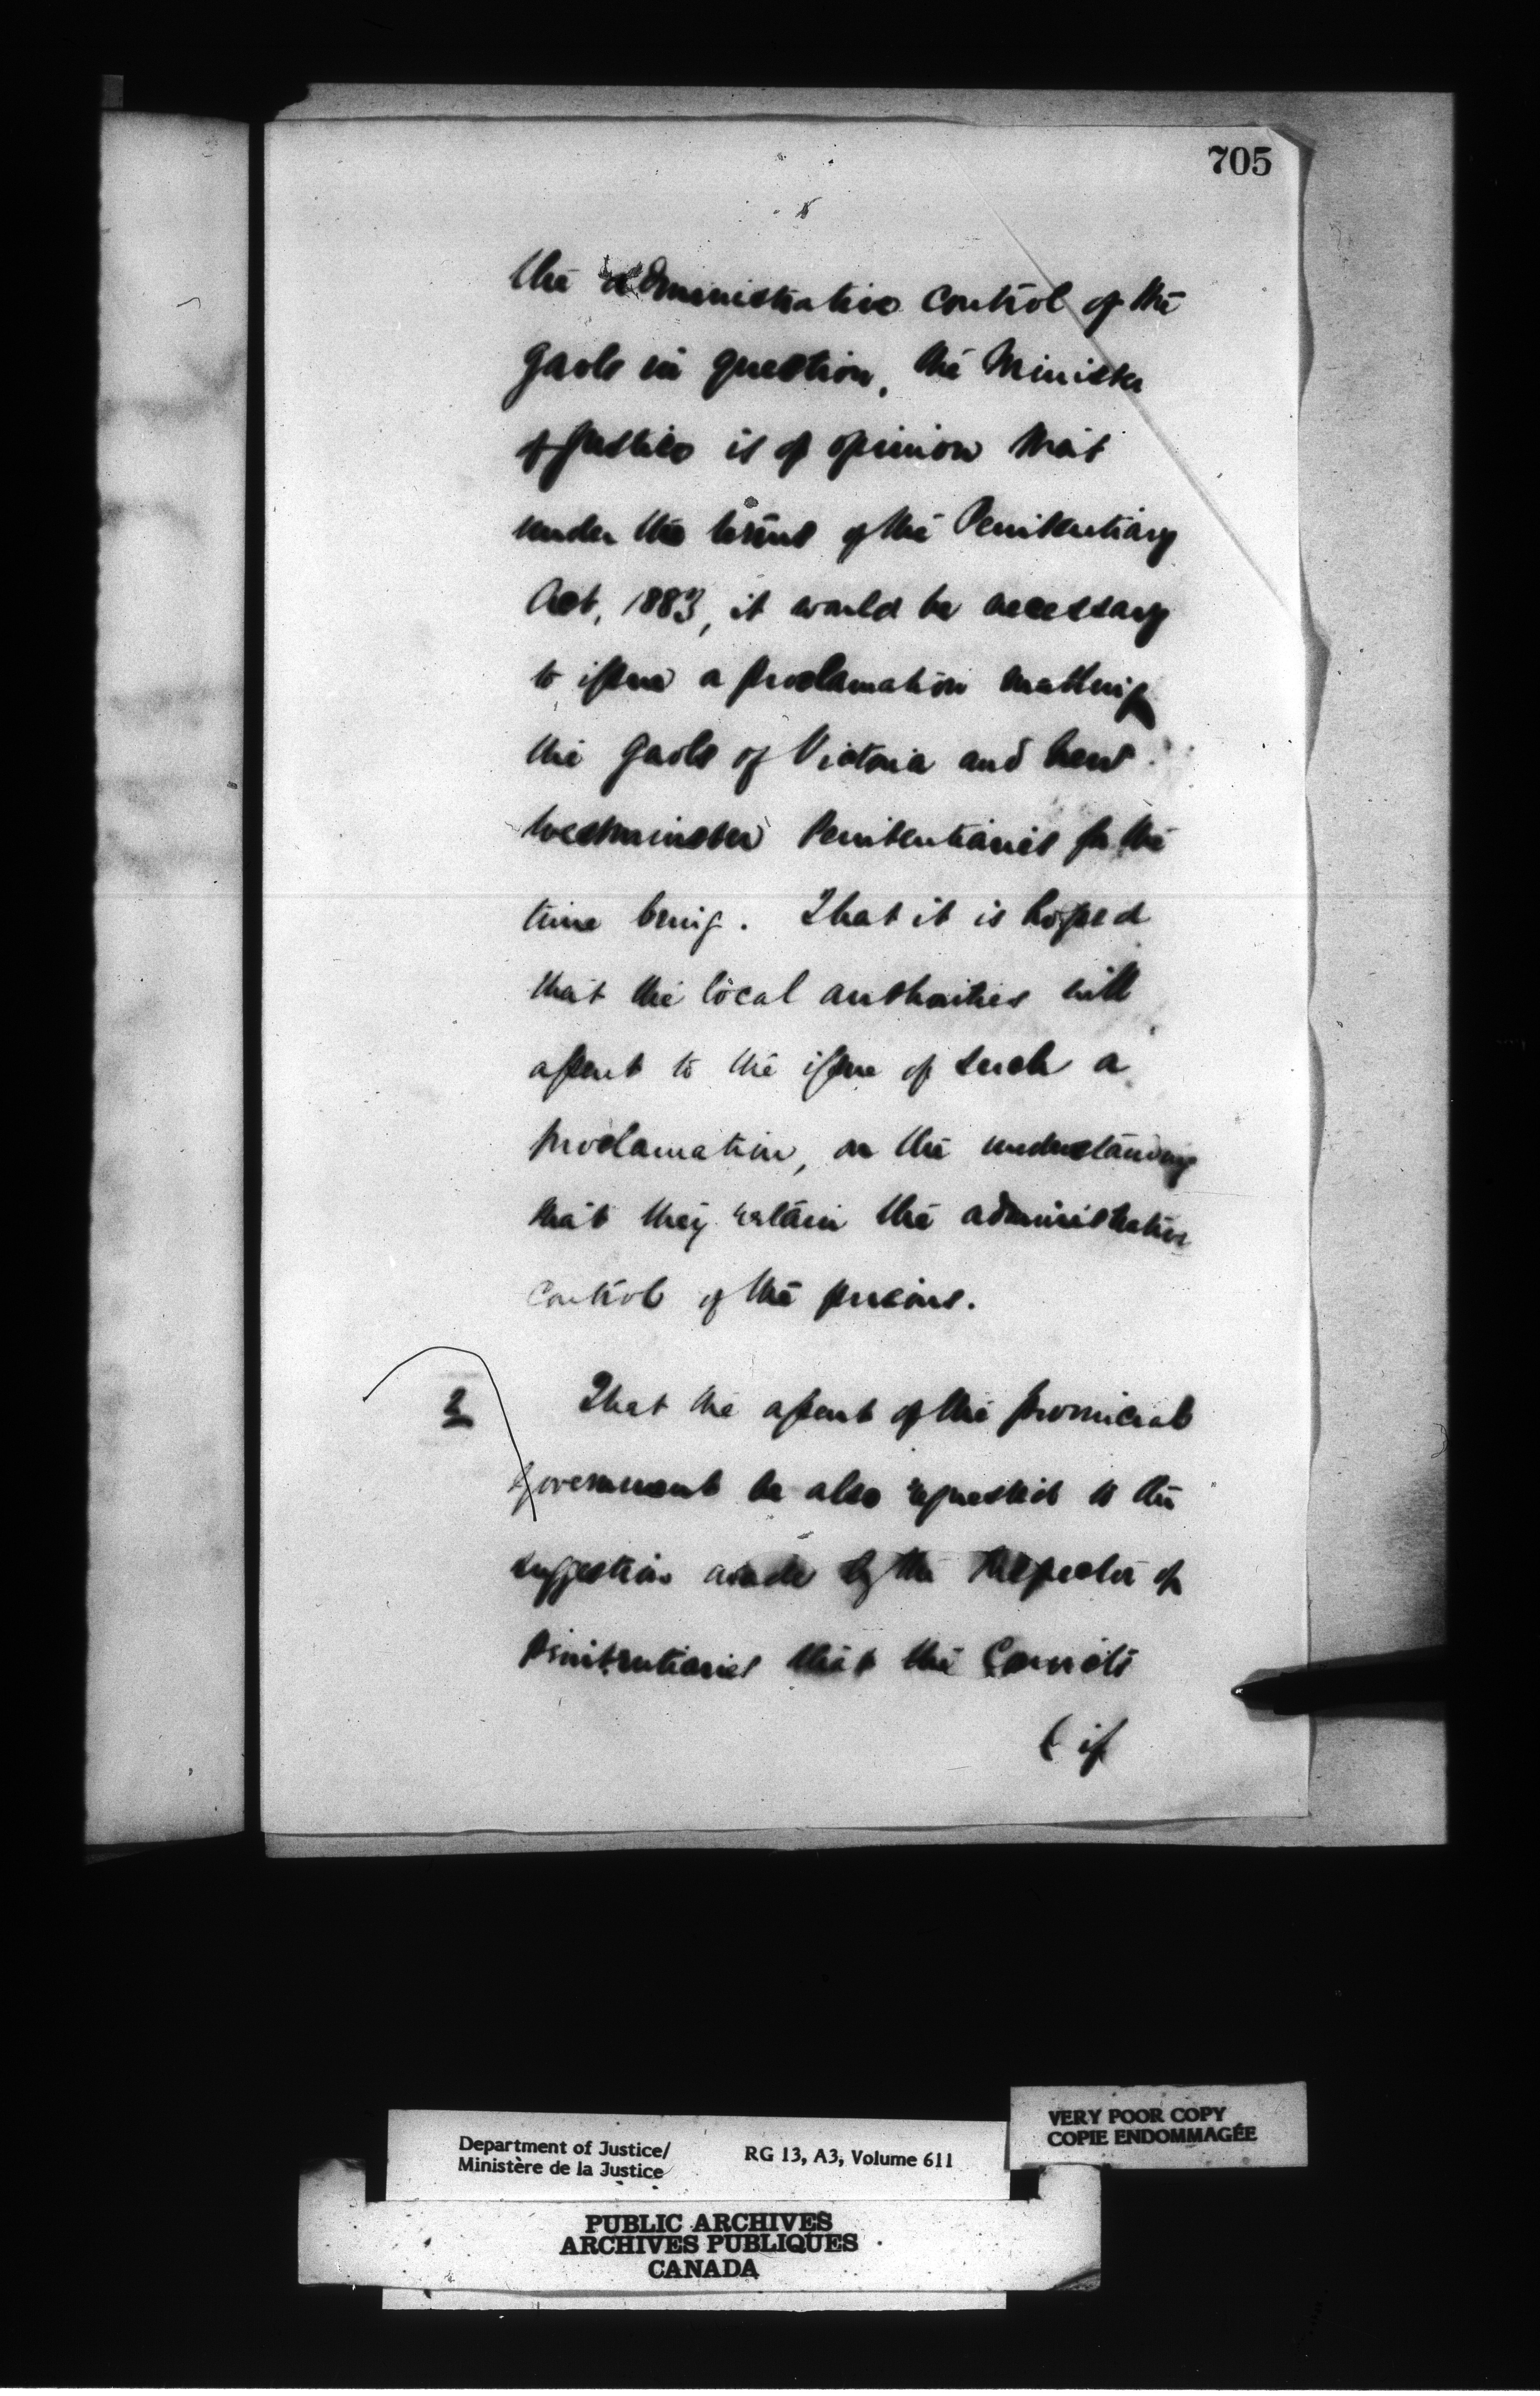 705
the administrative control of the
Gaols in question, the Minister
of Justice is of opinion that
under the terms of the Penitentiary
Act, 1883, it would be necessary
to issue a proclamation making
the Gaols of Victoria and New
Westminster Penitentiaries for the
time being. That it is hoped
that the local authorities will
assent to the issue of such a
proclamation, on the understanding
that they retain the administrative
control of the prisons.
2 That the assent of the provincial
Government be also requested to the
suggestion made by the Inspector of
Penitentiaries that the Convicts
( if
VERY POOR COPY
COPIE ENDOMMAGÉE
Department of Justice/ RG 13, A3, Volume 611
Ministère de la Justice
PUBLIC ARCHIVES
ARCHIVES PUBLIQUES
CANADA